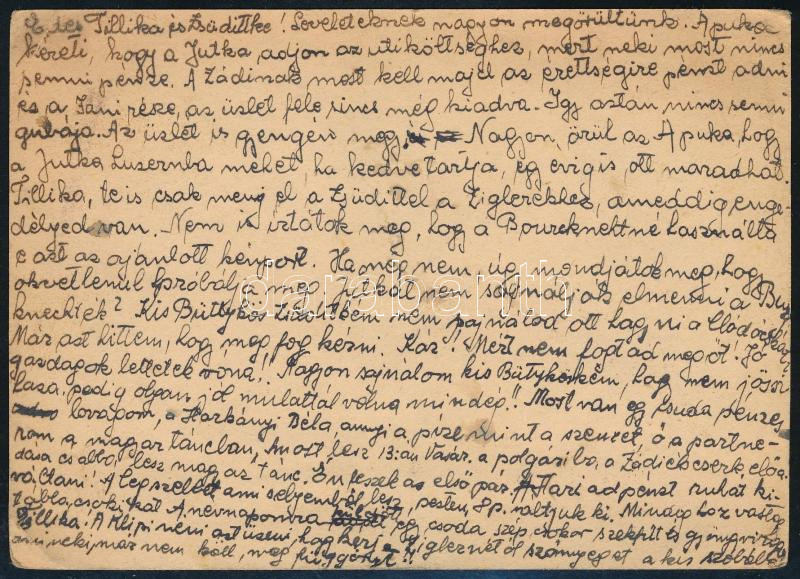 Édes Tillika és Zsüdittke! Leveleteknek nagyon megörültünk. Apuka
kéreti, hogy a Jutka adjon az utiköltséghez, mert neki most nincs
semmi pénze. A Zádinak most kell majd az érettségire pénzt adni
és a Jani része, az üzlet fele sincs még kiadva. Igy aztán nincs semmi
gubája. Az üzlet is gyengén megy. Nagyon örül az Apuka, hogy
a Jutka Luzernba mehet, ha kedve tartja, egy évig is ott maradhat.
Tillika, te is csak menj el a Zsüdittel a Ziglerékhez, ameddig enge-
délyed van. Nem is irtátok meg, hogy a Bourcknehtné használta
e azt az ajánlott kénport. Ha még nem, úgy mondjátok meg, hogy
okvetlenül próbálja meg. Jutkát nem sajnálják elmenni a
knechték? Kis Büttykös Zsüdittkém nem sajnálod ott hagyni a
Már azt hittem, hogy meg fog kérni. Kár! Mért nem fogtad meg őt! Jó
gazdagok lettetek vóna! Nagyon sajnálom kis Bütykéském, hogy nem jösz
haza, pedig olyan jól mulattál vólna mindég!! Most van egy csuda pénzes
lovagom, a Harkányi Béla, annyi a pize mint a szemét, ő a partne-
rom a magyar táncban, most lesz 13.án Vasár. a polgáriba, a Zádiék cserk. előa-
dása és abba lesz magy. az tánc. Én leszek az első pár. A Mari ad pénzt ruhát ki-
váltani! A legszebbet ami selyemből lesz, pesten, 8p. váltjuk ki. Minap hoz vastag
tábla csokikat A névnapomra egy csoda szép csokor szekfüt és gyöngyvirág
Tillika! A Klipi néni azt üzeni, hogy kérj a Ziglernétől szőnyeget a kis szobába
ami neki már nem kell, meg függönyt!!